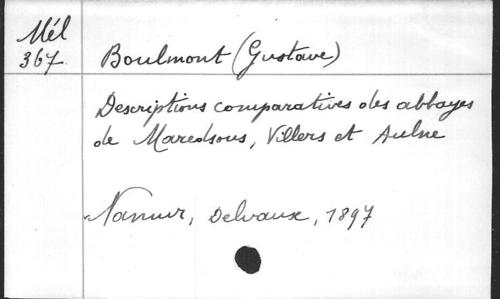 Mél
367
Boulmont (Gustave)
Descriptions comparatives des abbayes
de Maredsous, Villers et Aulne
Namur, Delvaux, 1897